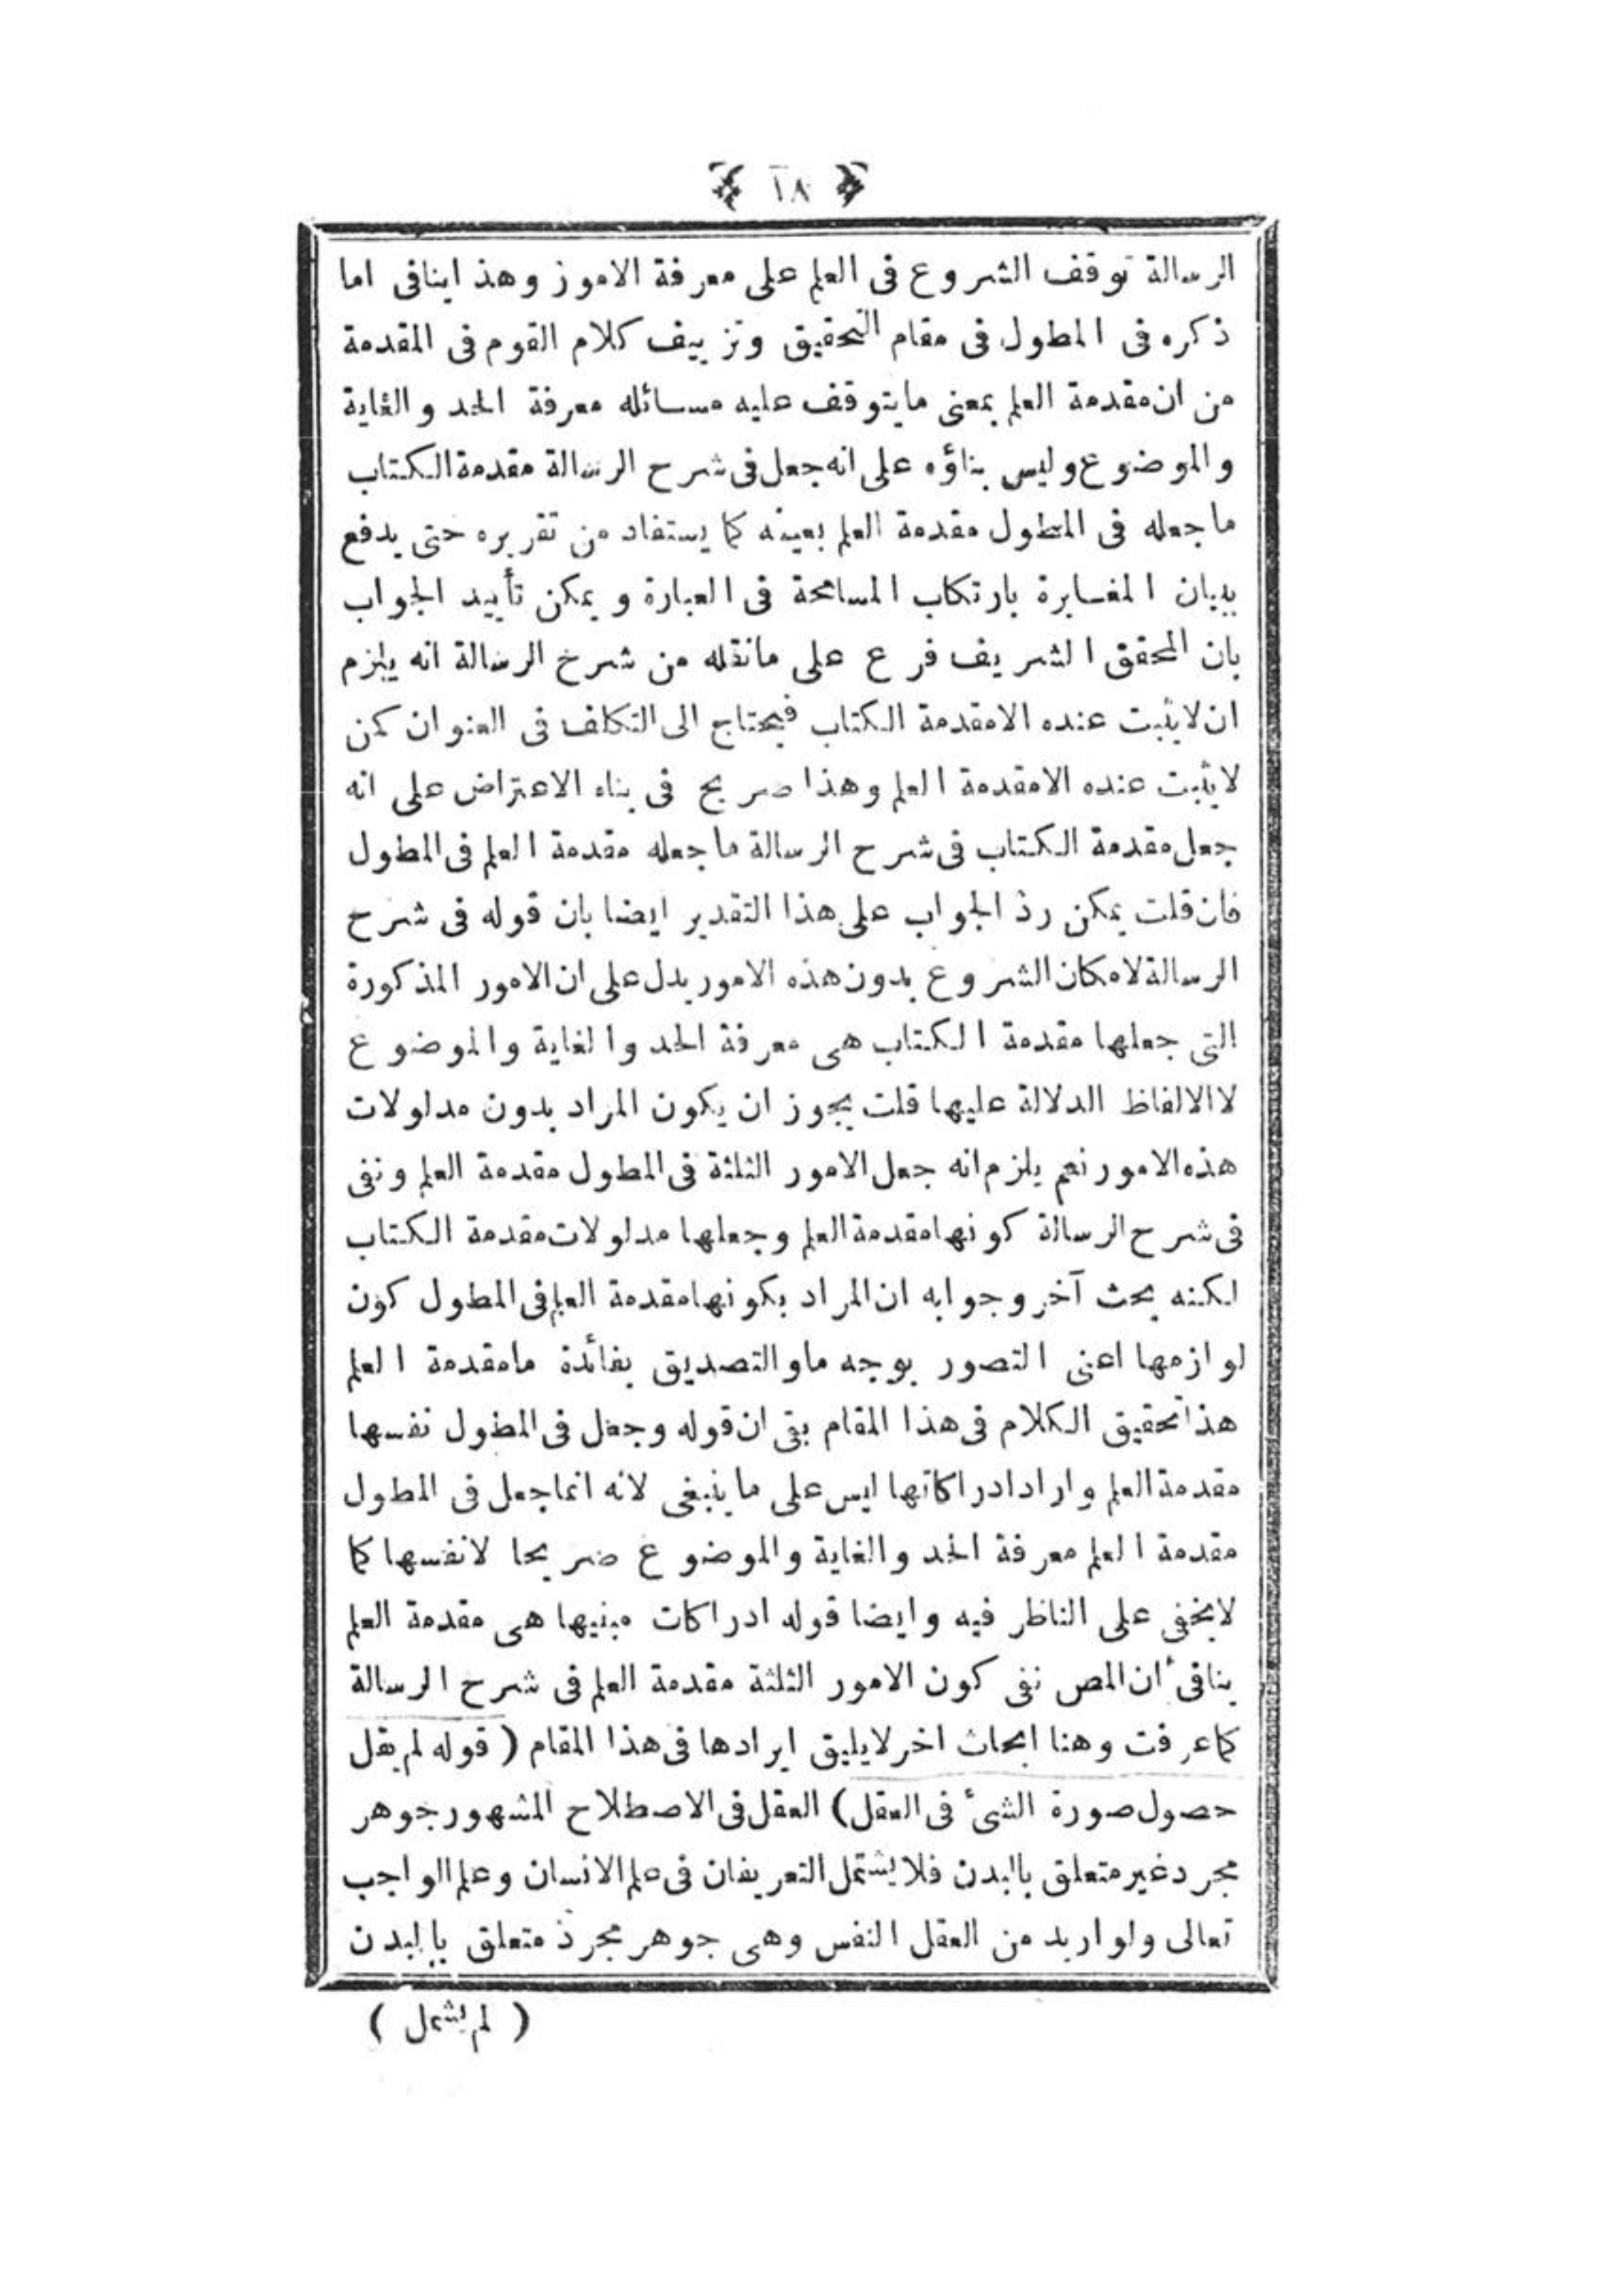 ١٨
الرسالة توقف الشروع فى العلم على معرفة الاموز وهذ اينافى اما
ذكره فى المطول فى مقام التحقيق وتزييف كلام القوم فى المقدمة
من ان مقدمة العلم بمعنى ما يتوقف عليه مسائله معرفة الحد والغاية
والموضوع وليس بناؤه على انه جعل فى شرح الرسالة مقدمة الكتاب
ما جعله فى المطول مقدمة العلم بعينه كما يستفاد من تقريره حتى يدفع
ببيان المغايرة بارتكاب المسامحة فى العبارة ويمكن تأييد الجواب
بان المحقق الشريف فرع على مانقله من شرح الرسالة انه يلزم
ان لايثبت عنده الامقدمة الكتاب فيحتاج الى التكلف فى العنوان كمن
لايثبت عنده الامقدمة العلم وهذا صريح فى بناء الاعتراض على انه
جعل مقدمة الكتاب فى شرح الرسالة ما جعله مقدمة العلم فى المطول
فان قلت يمكن رد الجواب على هذا التقدير ايضا بان قوله فى شرح
الرسالة لامكان الشروع بدون هذه الامور يدل على ان الامور المذكورة
التى جعلها مقدمة الكتاب هى معرفة الحد والغاية والموضوع
لا الالفاظ الدلالة عليها قلت يجوز ان يكون المراد بدون مدلولات
هذه الامور نعم يلزم انه جعل الامور الثلثة فى المطول مقدمة العلم ونفى
فى شرح الرسالة كونها مقدمة العلم وجعلها مدلولات مقدمة الكتاب
لكنه بحث آخر وجوابه ان المراد بكونها مقدمة العلم فى المطول كون
لوازمها اعنى التصور بوجه ما والتصديق بفائدة ما مقدمة العلم
هذا تحقيق الكلام فى هذا المقام بقى ان قوله وجعل فى المطول نفسها
مقدمة العلم واراد ادراكاتها ليس على ما ينبغى لانه انما جعل فى المطول
مقدمة العلم معرفة الحد والغاية والموضوع صريحا لانفسها كما
لايخفى على الناظر فيه وايضا قوله ادراكات مبنيها هى مقدمة العلم
ينافى ان المص نفى كون الامور الثلثة مقدمة العلم فى شرح الرسالة
كما عرفت وهنا ابحاث اخر لايليق ايرادها فى هذا المقام ( قوله لم يقل
حصول صورة الشئ فى العقل) العقل فى الاصطلاح المشهور جوهر
مجرد غير متعلق بالبدن فلا يشتمل التعريفان فى علم الانسان وعلم الواجب
تعالى ولو اريد من العقل النفس وهى جوهر مجرد متعلق بالبدن
( لم يشمل )